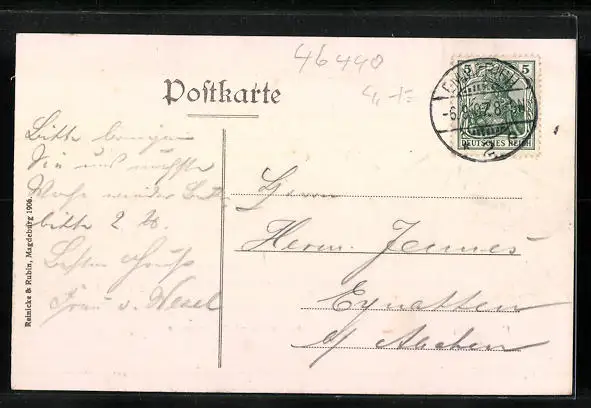 46440
4,-
Postkarte
5
DEUTSCHES REICH
Bitte bringen
Sie uns nächste
Woche wieder Butter
bitte 2 ℔.
Besten Gruß
Frau v. Wesel
Herrn
Herm. Jennes
Eynatten
b/ Aachen
Reinicke & Rubin, Magdeburg 1906.